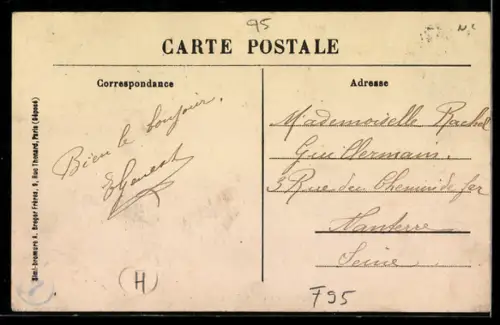 95
CARTE POSTALE
Correspondance
Adresse
Bien le bonjour.
EGenest
Mademoiselle Rachel
Guillermain.
3 Rue du Chemin de fer
Nanterre
Seine
(H)
F95
Simi-bromure A. Breger Frères, 9, Rue Thénard, Paris (Déposé)